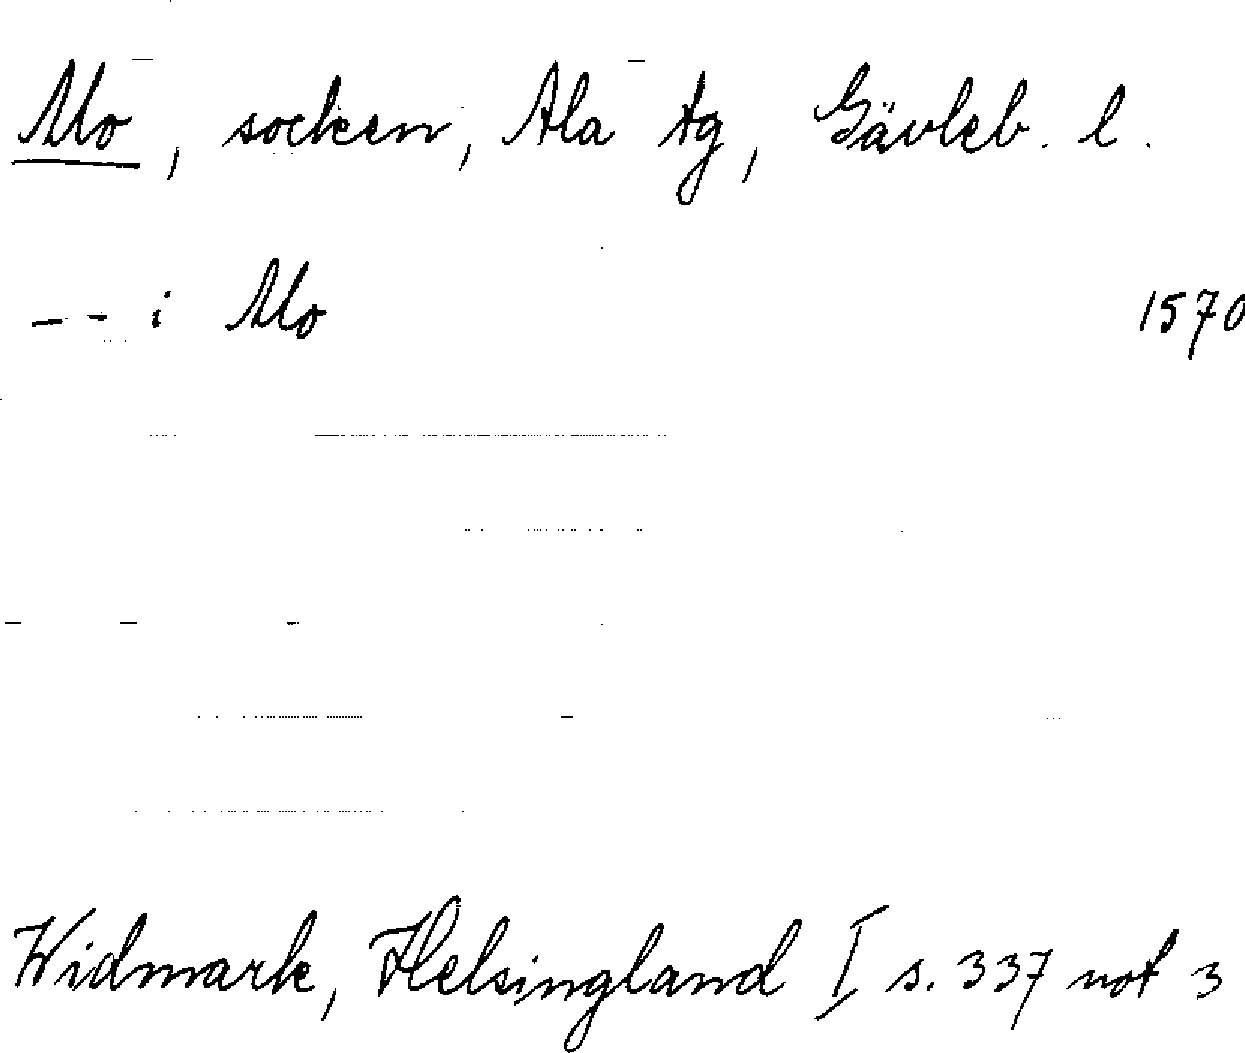 Mo, socken, Ala tg, Gävleb. l.
-- i Mo 1570
Widmark, Helsingland I s. 337 not 3